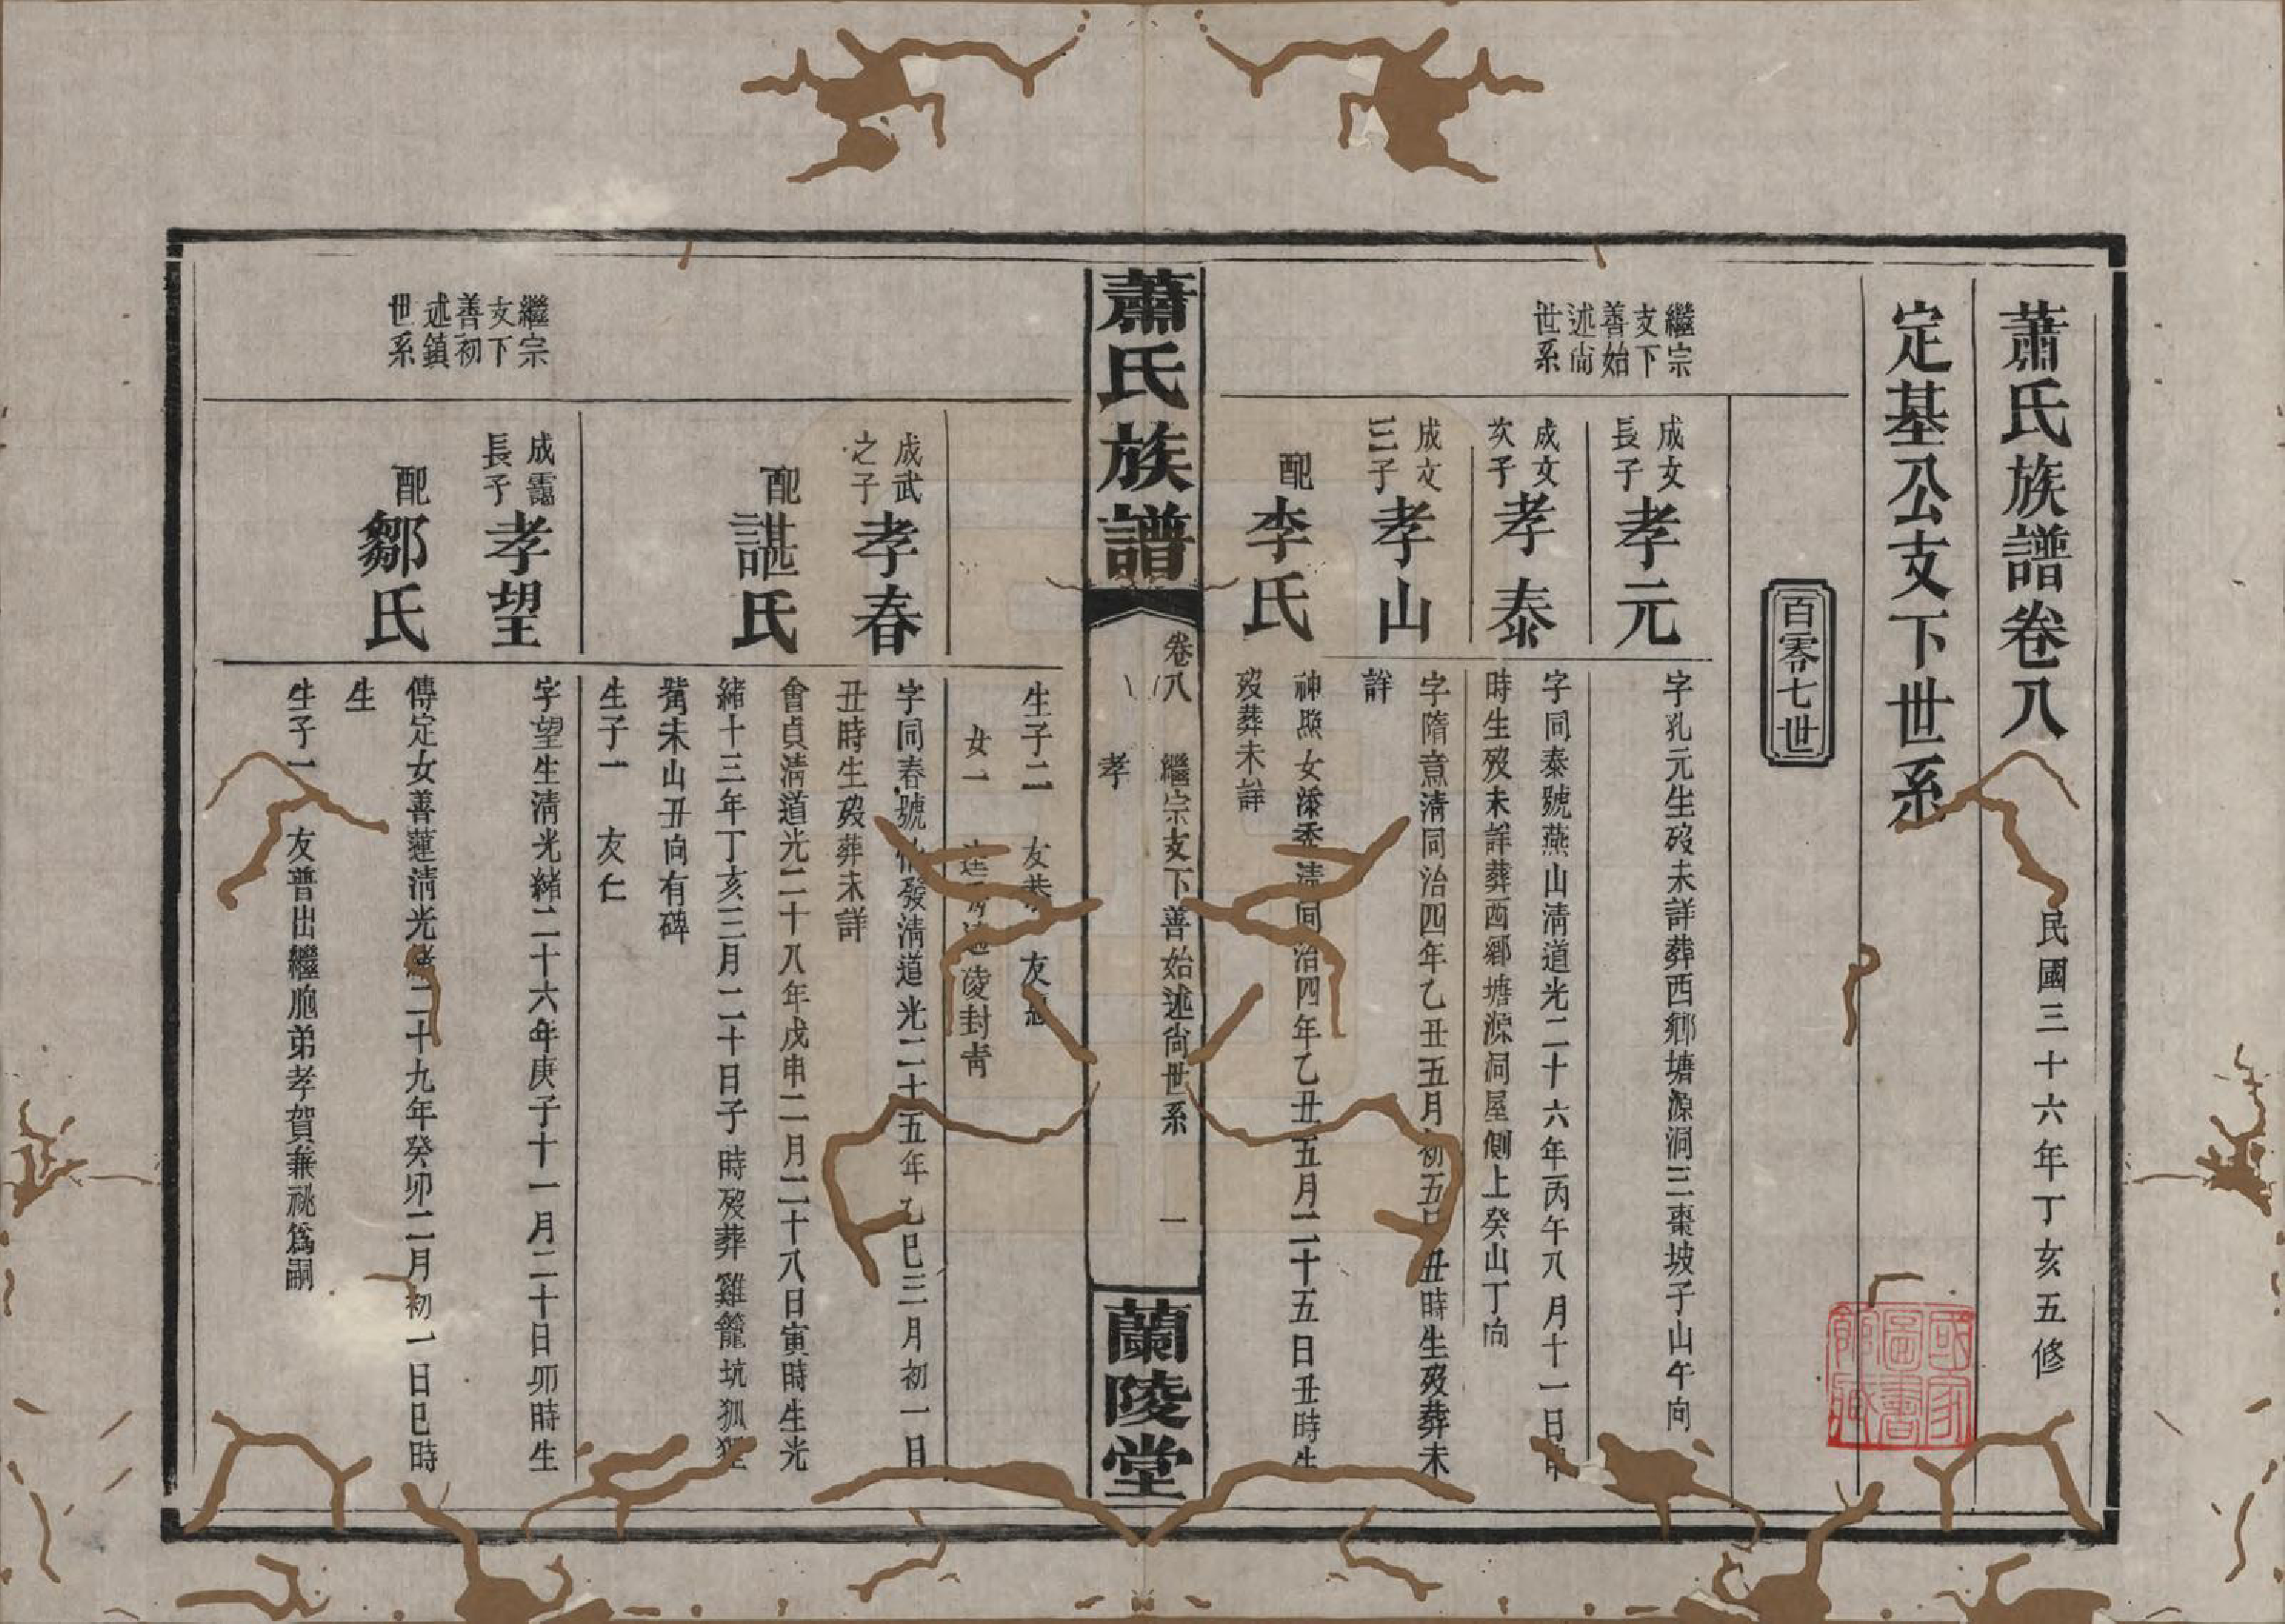 蕭氏族譜卷八
民國三十六年丁亥五修
定基公支下世系
百零七世
繼宗
支下
善始
述尙
世系
成文
長子
孝元
字孔元生歿未詳葬西鄉塘源洞三棗坡子山午向
成文
次子
孝泰
字同泰號燕山淸道光二十六年丙午八月十一日申
時生歿未詳葬西鄉塘源洞屋側上癸山丁向
成文
三子
孝山
字隋意淸同治四年乙丑五月初五日丑時生歿葬未
詳
配
李氏
神照女添秀淸同治四年乙丑五月二十五日丑時生
歿葬未詳
蕭氏族譜
卷八
繼宗支下善始述尙世系
孝
一
蘭陵堂
生子二 友恭 友
女一 適 陵封靑
繼宗
支下
善初
述鎮
世系
成武
之子
孝春
字同春號 發淸道光二十五年乙巳三月初一日
丑時生歿葬未詳
配
諶氏
會貞淸道光二十八年戊申二月二十八日寅時生光
緖十三年丁亥三月二十日子時歿葬雞籠坑狐狸
觜未山丑向有碑
生子一 友仁
成靄
長子
孝望
字望生淸光緖二十六年庚子十一月二十日卯時生
配
鄒氏
傳定女善蓮淸光緖二十九年癸卯二月初一日巳時
生
生子一 友普出繼胞弟孝賀兼祧爲嗣
國家圖書館藏